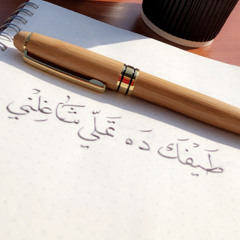 طَيْفَك دَه تَمَلّي شَاغِلْني